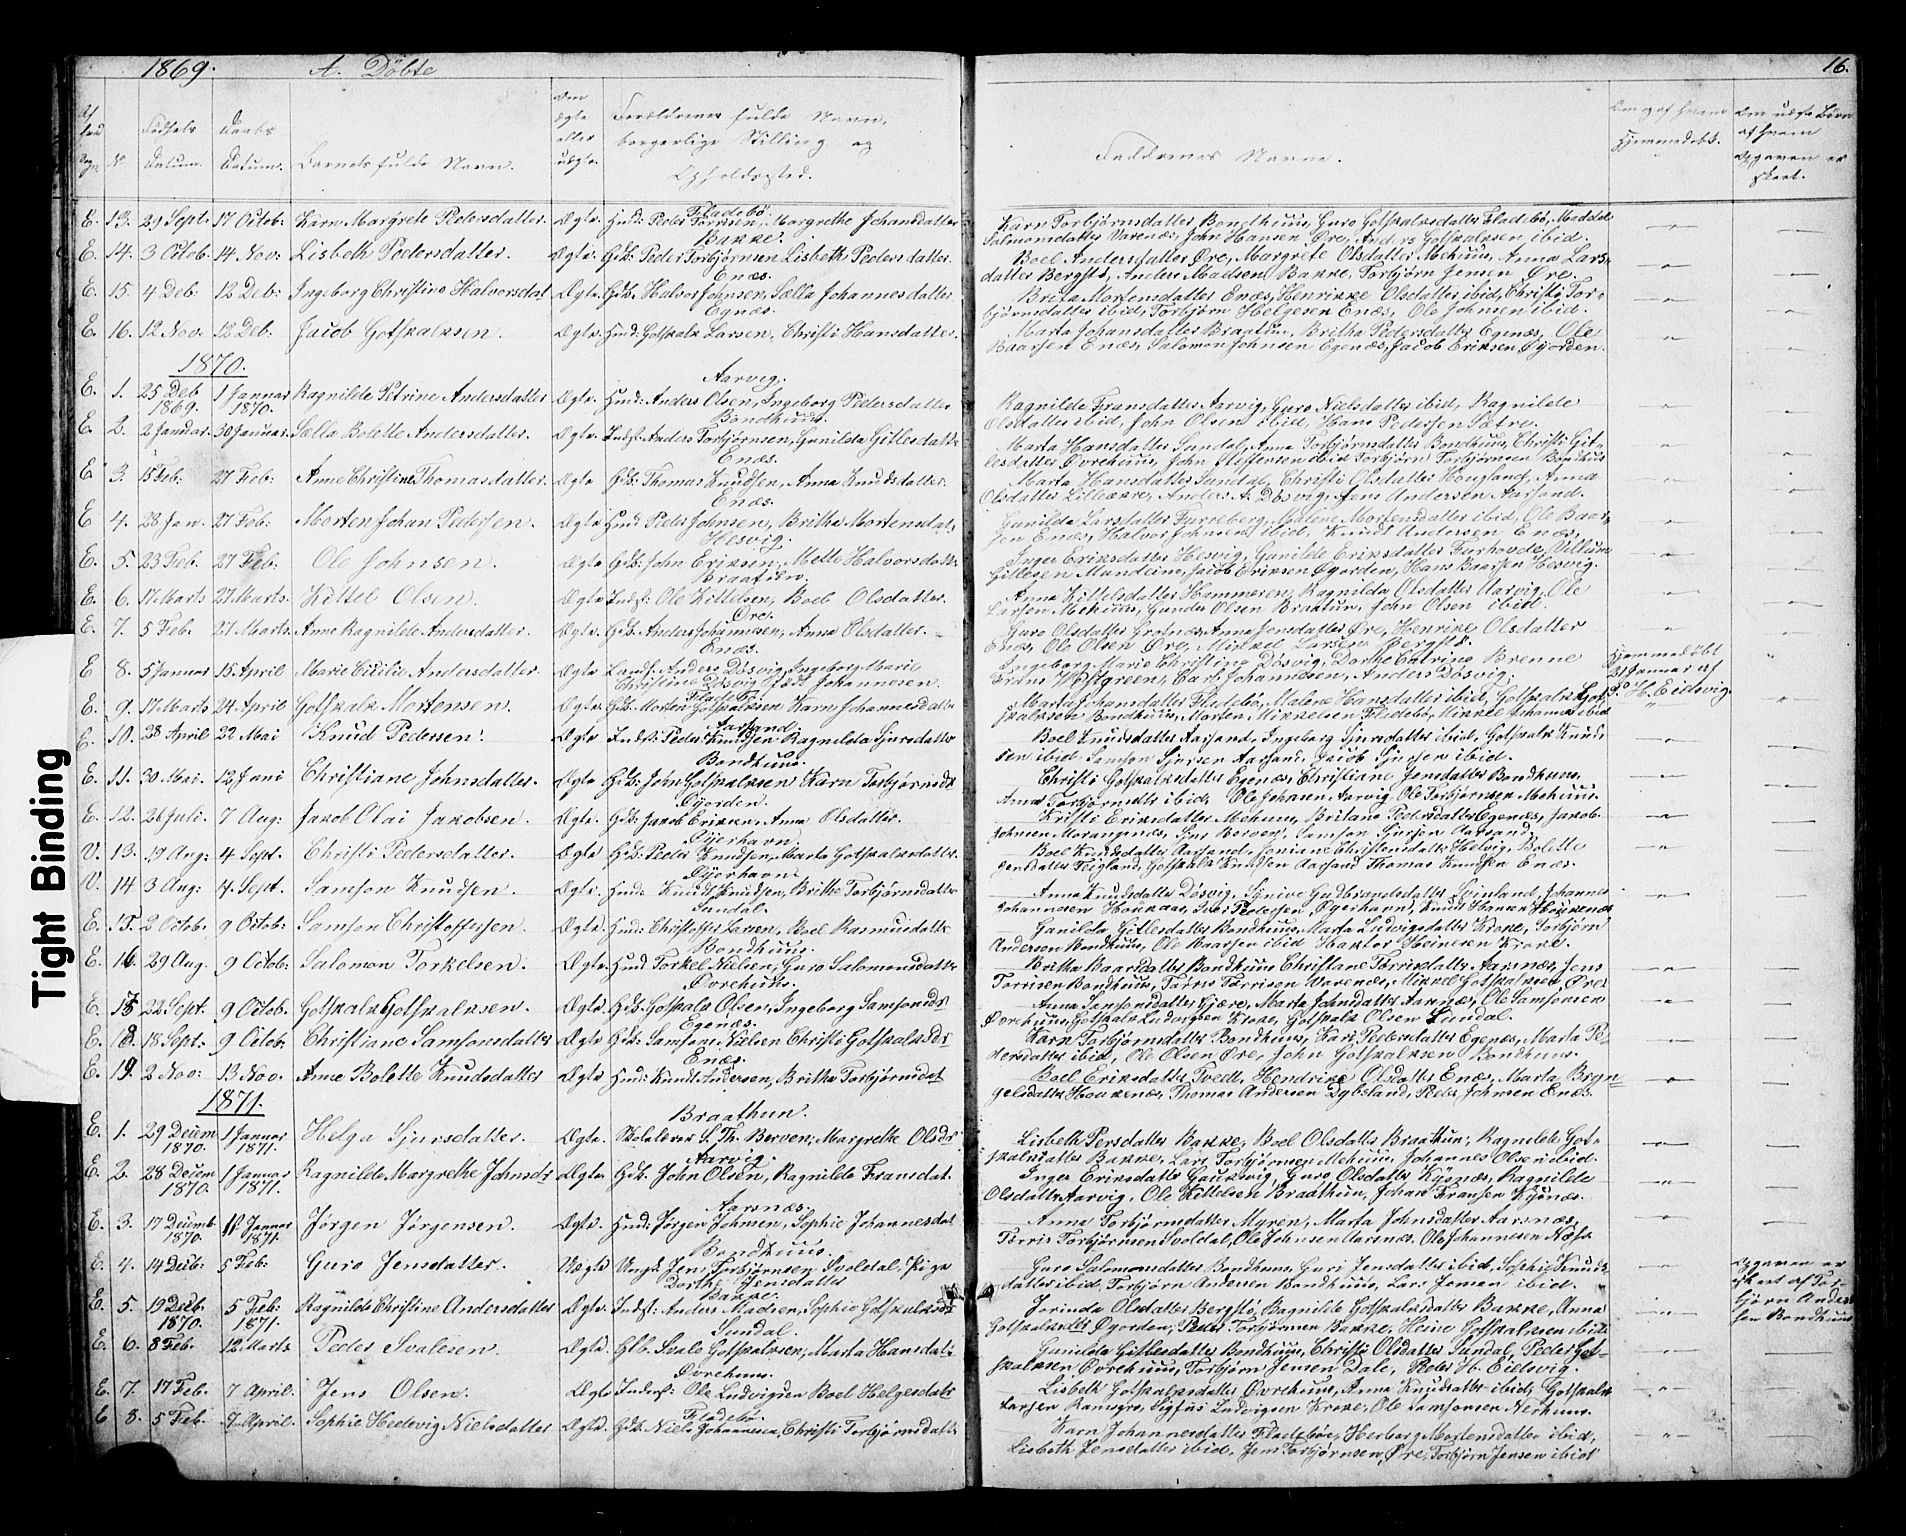 1869. A. Döbte
16.
Fødsels Daabs
No Datum. Datum. Barnets fulde Navn.
Om ægte eller uægte.
Forældrenes fulde Navn, borgerlige Stilling og Opholdssted.
Faddernes Navne.
E. 13. 29 Sept. 17 Octob: Karn Margrete Pedersdatter. Ægte. Hmd: Peder Torrisen, Margrethe Johansdatter Fladebö.
Karn Torbjørnsdatter Bondhuus, Guro Gotskalksdatter Fladebö,
Salomonsdatter Varenæs, John Hansen Øre, Anders Gotskalksen ibid.
E. 14. 3 Octob. 14 Nov: Lisbeth Pedersdatter. Ægte. Gdb: Peder Torbjörnsen Lisbeth Pedersdatter. Bakke.
Boel Andersdatter Øre, Margrete Olsdatter Mehuus, Anna Lars-
datter Bergstö, Anders Madsen Bakke, Torbjørn Jensen Øre.
E. 15. 4 Deb: 12 Deb: Ingeborg Christine Halvorsdat Ægte. Gdb. Halvor Johnsen, Sælla Johannesdatter. Enæs.
Brita Mortensdatter Enæs, Henrikke Olsdatter ibid, Christi Tor-
bjørnsdatter ibid, Torbjørn Helgesen Enæs, Ole Johnsen ibid.
E. 16. 12 Nov. 12 Deb: Jacob Gotskalksen. Ægte. Hmd: Gotskalk Larsen, Christi Hansdatter. Egnæs.
Marta Johansdatter Braatun, Britha Pedersdatter Egenæs, Ole
Baarsen Enæs, Salomon Johnsen Egenæs, Jacob Eriksen Øyorden.
1870.
E. 1. 25 Deb 1869. 1 Januar 1870. Ragnilde Petrine Andersdatter Ægte. Hmd: Anders Olsen, Ingeborg Pedersdatter Aarvig.
Ragnilde Fransdatter Aarvig, Guro Nielsdatter ibid, Ragnilde
Olsdatter ibid, John Olsen ibid, Hans Pedersen Sætre.
E. 2. 2 Januar. 30 Januar. Sælla Bolette Andersdatter. Ægte. Indst: Anders Torbjørnsen, Gunilda Gitlesdatt: Bondhuus.
Marta Hansdatter Sundal, Anna Torbjørnsdatter Bondhuus, Christi Git-
lesdatter Øvrehuus, John ibid Torbjørn Torbjørnsen Bondhus
E 3. 15 Feb: 27 Feb: Anne Christine Thomasdatter. Ægte Gdb: Thomas Knudsen, Anna Knudsdatter. Enæs.
Marta Hansdatter Sundal, Christi Olsdatter Hougland, Anna
Olsdatter Lilleøkre, Anders A. Dösvig, Jens Andersen Aarsand.
E 4. 28 Jan. 27 Feb: Morten Johan Pedersen. Ægte Hmd Peder Johnsen, Britha Mortensdat, Enæs.
Gunilda Larsdatter Furreberg, Malene Mortensdatter ibid, Ole Baar-
sen Enæs, Halvor Johnsen ibid, Knud Andersen Enæs.
E. 5. 23 Feb. 27 Feb: Ole Johnsen. Ægte Gdb: John Eriksen, Mette Halvorsdatt: Hesvig.
Inger Eriksdatter Hesvig, Gunilde Eriksdatter Furhovde, Villum
Gitlesen Mundeim, Jacob Eriksen Øyorden, Hans Baarsen Hesvig.
E. 6. 17 Marts 27 Marts. Kittel Olsen. Ægte Indst: Ole Kittelsen, Boel Olsdatter. Braatun.
Anna Kittelsdatter Hammeren, Ragnilda Olsdatter Aarvig, Ole
Larsen Mehuus, Gunder Olsen Braatun, John Olsen ibid.
E. 7. 5 Feb. 27 Marts. Anne Ragnilde Andersdatter. Ægte. Gdb. Anders Johannesen, Anna Olsdatter. Øre.
Guro Olsdatter Grotnæs, Anna Jensdatter Øre, Henrike Olsdatter
Enæs, Ole Olsen Øre, Mikkel Larsen Bergstö.
E 8. 5 Januar 15 April Marie Cicilie Andersdatter. Ægte Landh. Anders Dösvig, Ingeborg Marie Christine Dösvig født Johannesen. Enæs.
Ingeborg Marie Christine Dösvig, Dorthe Catrine Brenne
Frans Westgreen, Carl Johannesen, Anders Dösvig;
Hjemmedöbt 21 Januar af P. H. Eidsvig.
E. 9. 17 Marts 24 April Gotskalk Mortensen. Ægte Gdb: Morten Gotskalksen Karn Johannesdatt: Fladebö.
Marta Johansdatter Fladebö, Malene Hansdatter ibid, Gotskalk Got-
skalksen Bondhuus, Morten Mikkelsen Fladebö, Mikkel Johannes ibid
E. 10. 28 April 22 Mai Knud Pedersen. Ægte Indst: Peder Knudsen Ragnilda Sjursdatter Aarsand.
Boel Knudsdatter Aarsand, Ingeborg Sjursdatter ibid, Gotskalk Knud-
sen ibid Samson Sjursen Aarsand, Jacob Sjursen ibid.
E. 11. 30 Mai. 12 Juni Christiane Johnsdatter. Ægte Gdb: John Gotskalksen Karn Torbjørnsdt Bondhuus.
Christi Gotskalksdatter Egenæs, Christiane Jensdatter Bondhuus,
Anna Torbjørnsdtr ibid, Ole Johnsen Aarvig Ole Torbjörnsen Mehuus.
E. 12. 26 Juli. 7 Aug: Jakob Olai Jakobsen. Ægte. Gdb: Jakob Eriksen, Anna Olsdatter. Öyorden.
Kristi Eriksdatter Mehuus, Pedersdatter Egenæs, Jakob
Johnsen Morangsnæs, Sjur Berven, Samson Sjursen Aarsand.
V. 13. 19 Aug: 4 Sept. Christi Pedersdatter. Ægte Gdb: Peder Knudsen, Marta Gotskalksdatter. Öyerhavn.
Boel Knudsdatter Aarsand, Christensdatter Helvig, Bolette
Jensdatter Teigland, Gotskalk Knudsen Aarsand Thomas Knudsen Enæs.
V. 14 3 Aug: 4 Sept. Samson Knudsen. Ægte. Hmd: Knud Knudsen, Brithe Torbjørnsdatter Öyerhavn.
Anna Knudsdatter Dösvig, Synive Gudbrandsdatter Johannes
Johannesen Houkaas, Iver Pedersen Öyerhavn, Knud Hansen Houkenæs
E. 15. 2 Octob. 9 Octob: Samson Christoffersen. Ægte. Hmd: Christoffer Larsen, Boel Rasmusdatter Sundal.
Gunilda Gitlesdatter Bondhuus, Marta Ludvigsdatter Kroke, Torbjørn
Andersen Bondhuus, Ole Baarsen ibid Haktor Heineken Kroke.
E. 16. 29 Aug. 9 Octob: Salomon Torkelsen. Ægte. Hmd Torkel Nielsen, Guro Salomonsdatter Bondhuus.
Britha Baarsdatter Bondhuus Christiane Torrisdatter Aarsnæs, Jens
Torrisen Bondhuus, Torris Torrisen Varenæs, Mikkel Gotskalksen, Øre.
E. 17 22 Sept. 9 Octob. Gotskalk Gotskalksen. Ægte. Gdb: Gotskalk Olsen, Ingeborg Samsonsdt. Övrehuus.
Anna Samsonsdatter Gjære, Marta Johnsdatter Aarsnæs, Ole Samsonsen
Øvrehuus, Gotskalk Ludvigsen Kroke, Gotskalk Olsen Sundal.
E. 18. 18 Sept. 9 Octob: Christiane Samsonsdatter Ægte Gdb: Samson Nielsen Christi Gotskalksdr Egenæs.
Karn Torbjørnsdatter Bondhuus, Kari Pedersdatter Egenæs, Marta Pe-
dersdatter ibid, Ole Olsen Øre, John Gotskalksen Bondhuus.
E. 19. 2 Nov: 13 Nov. Anne Bolette Knudsdatter Ægte Hmd: Knud Andersen, Britha Torbjørnsdat Enæs.
Boel Eriksdatter Tvedt, Hendrike Olsdatter Enæs, Marta Bryn-
gelsdatter Houkenæs, Thomas Andersen Dybsland, Peder Johnsen Enæs.
1871.
E. 1. 29 Decem 1870. 1 Januar 1871. Helga Sjursdatter. Ægte. Skolelærer S. Th. Berven, Margrethe Olsdr Braathun.
Lisbeth Persdatter Bakke, Boel Olsdatter Braathun, Ragnilde Got-
skalksdatter Bakke, Lars Torbjørnsen Mehuus, Johannes Olsen ibid.
E. 2. 28 Decem 1870. 1 Januar 1871. Ragnilde Margrethe Johnsdr Ægte. Gdb. John Olsen, Ragnilde Fransdat. Aarvig.
Inger Eriksdatter Gaukvig, Guro Olsdatter Kysnæs, Ragnilde
Olsdatter Aarvig, Ole Kittelsen Braathun, Johan Fransen Kysnæs.
E. 3. 17 Decemb 1870. 1 Januar 1871. Jørgen Jørgensen. Ægte. Hmd: Jørgen Johnsen, Sophie Johannesdat Aarsnæs.
Anna Torbjørnsdatter Myren, Marta Johnsdatter Aarsnæs,
Torris Torbjørnsen Svoldal, Ole Johnsen Aarsnæs, Ole Johannesen
E. 4. 14 Deb: 5 Feb: Guro Jensdatter. Uægte Ungk. Jens Torbjørnsen Svoldal, Pige Dorthe Jensdatter Bondhuus.
Guro Salomonsdatter Bondhuus, Guri Jensdatter ibid, Sophie Knuds-
datter ibid, Torbjørn Andersen Bondhuus, Lars Jensen ibid.
Opgaven er skeet af Tor-
bjørn Anders-
sen Bondhuus
E. 5. 19 Deb. 1870. 5 Feb: 1871. Ragnilde Christine Andersdatter Ægte. Indst: Anders Madsen, Sophie Gotskalksdt Bakke.
Jorinda Olsdatter Bergstö, Ragnilde Gotskalksdatter Bakke, Anna
Gotskalksdtr Öyorden, Peder Torbjørnsen Bakke, Heine Gotskalksen ibid.
E. 6. 8 Feb. 12 Marts Peder Svalesen. Ægte. Gdb. Svale Gotskalksen, Marta Hansdat: Sundal.
Gunilda Gitlesdatter Bondhuus, Christi Olsdatter Sundal, Peder Got-
skalksen Övrehuus, Torbjørn Jensen Dale, Peder H. Eidsvig.
E. 7. 17 Feb. 7 April. Jens Olsen. Ægte Inderst: Ole Ludvigsen Boel Helgesdatr Övrehuus.
Lisbeth Gotskalksdatter Övrehuus, Anna Knudsdatter ibid, Gotskalk
Larsen Ramsgro, Sigfus Ludvigsen Kroke, Ole Samsonsen Nerhuus.
E 8. 5 Feb. 7 April. Sophie Hedevig Nielsdatter Ægte. Gdb. Niels Johannesen, Christi Torbjørnsdatter Fladebö.
Karn Johannesdatter Fladeböe, Herborg Mortensdatter ibid,
Lisbeth Jensdatter ibid, Jens Torbjørnsen, Øre, Torbjørn Jensen ibid
Tight Binding